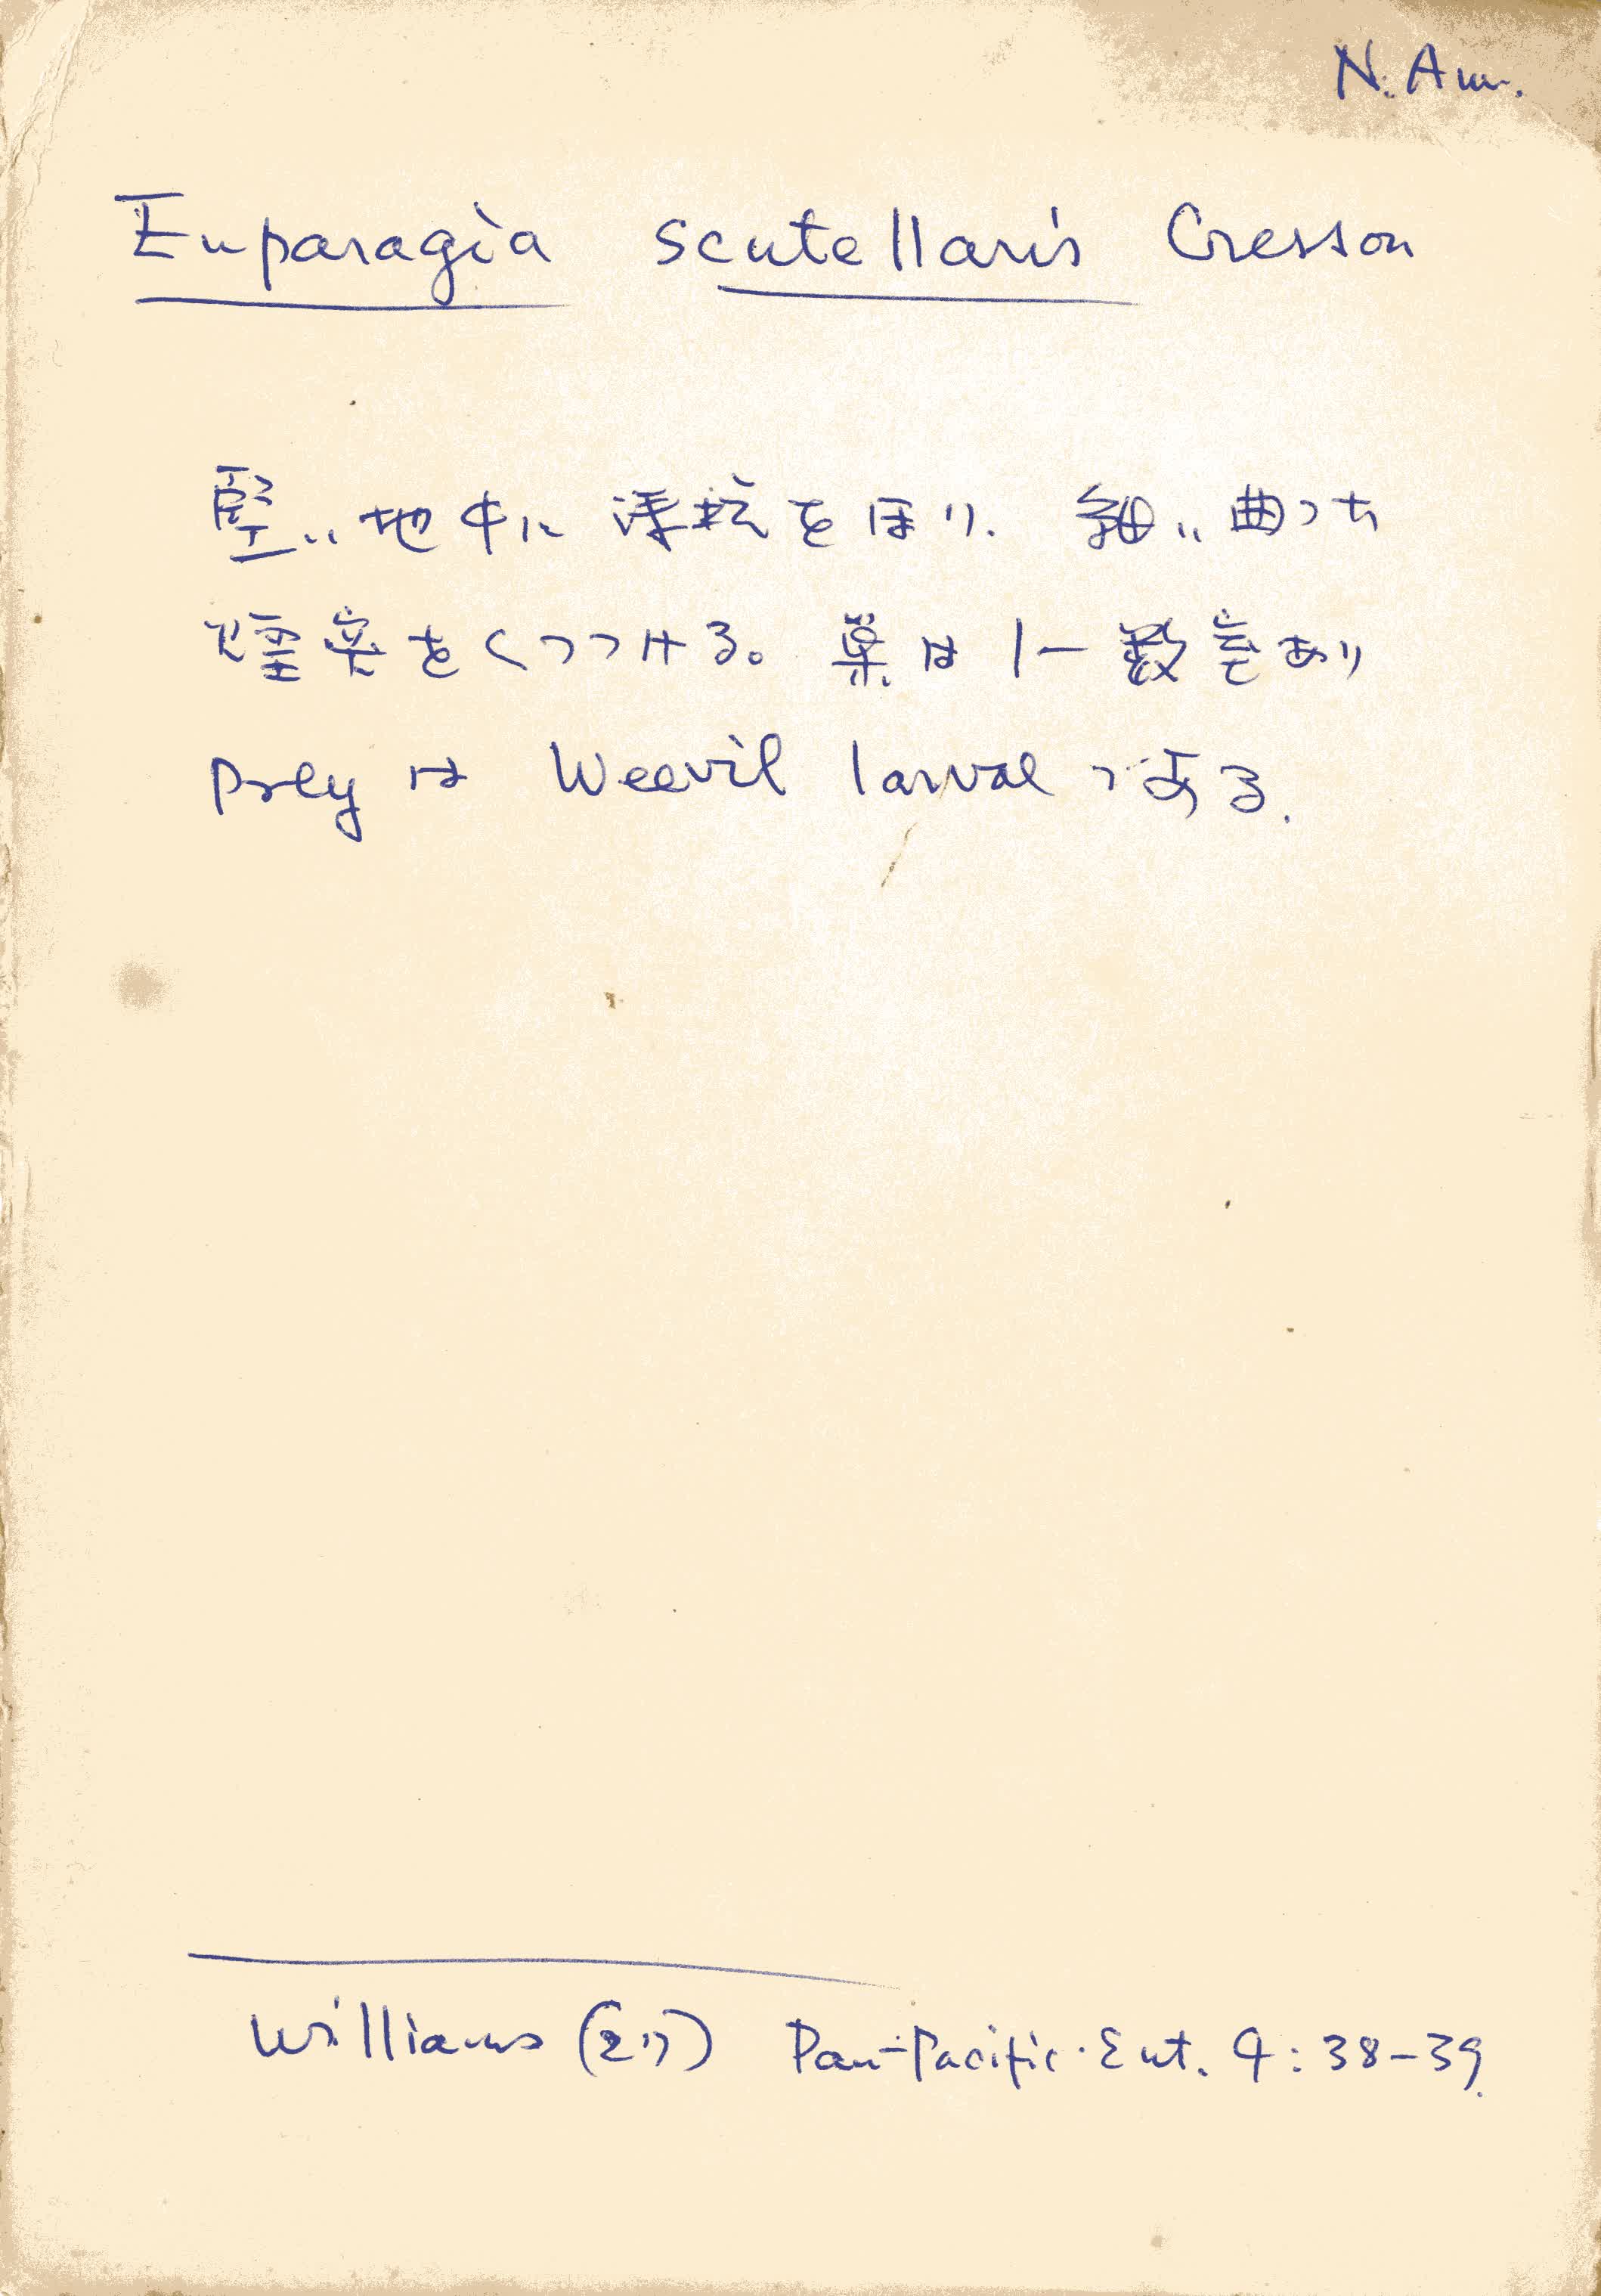 N. Am.
Euparagia scutellaris Cresson
堅い地中に浅坑をほり、細い曲った
煙突をくっつける。巣は1–数室あり
prey は Weevil larvae である.
Williams (27) Pan-Pacific Ent. 4: 38–39.